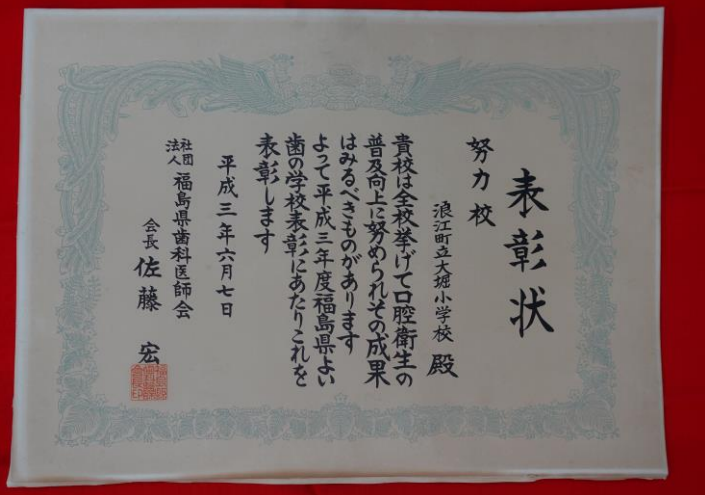 表彰状
努力校
浪江町立大堀小学校 殿
貴校は全校挙げて口腔衛生の
普及向上に努められその成果
はみるべきものがあります
よって平成三年度福島県よい
歯の学校表彰にあたりこれを
表彰します
平成三年六月七日
社団法人 福島県歯科医師会
会長 佐藤 宏